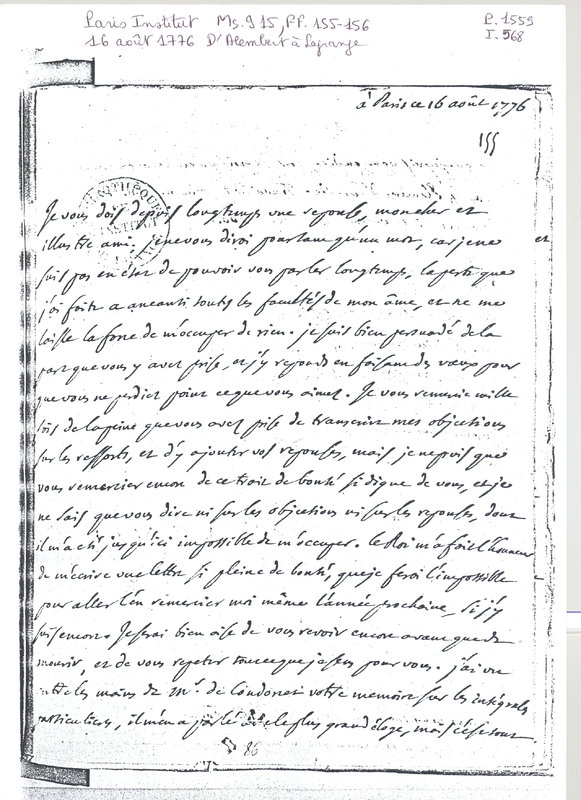 Paris Institut Ms. 915, ff. 155-156
P. 1559
16 août 1776 D'Alembert à Lagrange
I. 568
à Paris ce 16 août 1776
155
Je vous dois depuis longtemps une reponse, mon cher et
illustre ami; je ne vous dirai pourtant qu'un mot, car je ne
suis pas en état de pouvoir vous parler longtemps, la perte que
j'ai faite a aneanti toutes les facultés de mon âme, et ne me
laisse la force de m'occuper de rien. je suis bien persuadé de la
part que vous y avez prise, et j'y reponds en faisant des vœux pour
que vous ne perdiez point ce que vous aimez. Je vous remercie mille
fois de la peine que vous avez prise de transcrire mes objections
sur les ressorts, et d'y ajouter vos reponses, mais je ne puis que
vous remercier encore de ce trait de bonté si digne de vous, et je
ne sais que vous dire ni sur les objections ni sur les reponses, dont
il m'a été jusqu'ici impossible de m'occuper. le Roi m'a fait l'honneur
de m'ecrire une lettre si pleine de bonté, que je ferai l'impossible
pour aller l'en remercier moi même l'année prochaine, si j'y
suis encore. Je serai bien aise de vous revoir encore avant que de
mourir, et de vous repeter tout ce que je sens pour vous. j'ai vu
entre les mains de Mr. de Condorcet votre memoire sur les intégrales
particulieres, il m'en a parlé avec le plus grand éloge, mais c'est tout
86